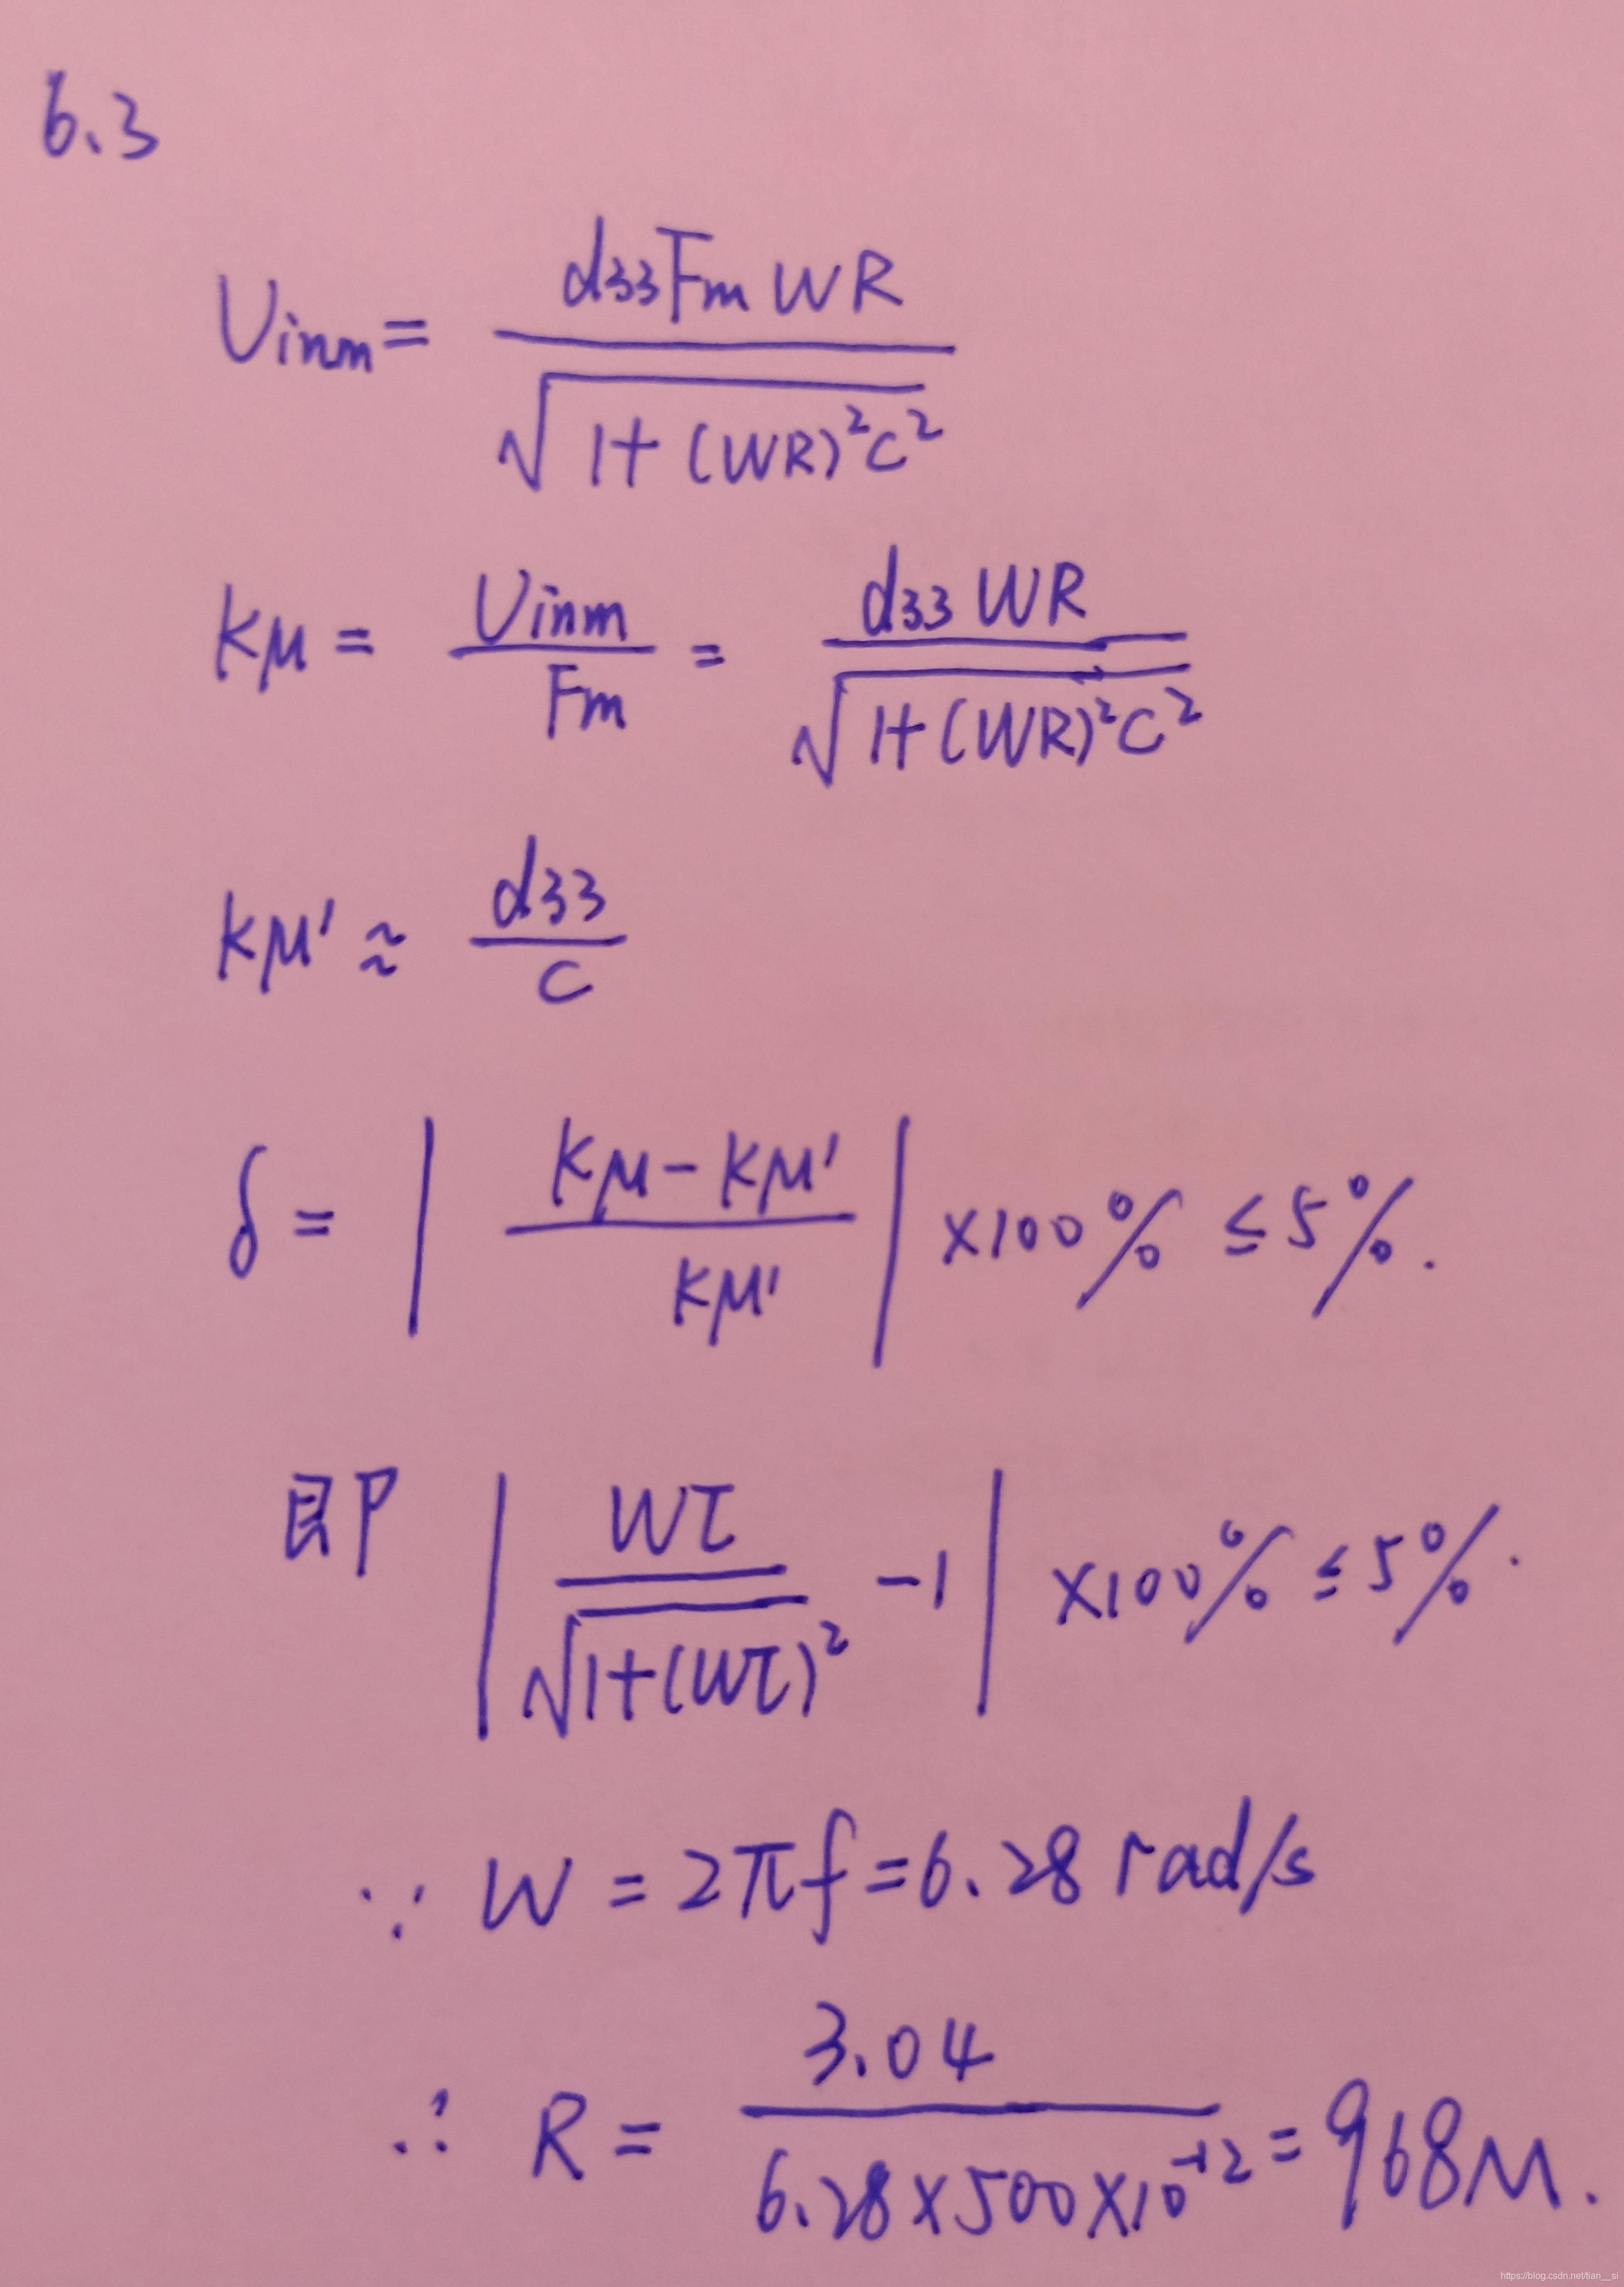 6.3
Uinm = d33FmWR / √(1+(WR)²C²)
Kμ = Uinm / Fm = d33WR / √(1+(WR)²C²)
Kμ' ≈ d33 / C
δ = | (Kμ - Kμ') / Kμ' | ×100% ≤ 5%.
即 | Wτ / √(1+(Wτ)²) - 1 | ×100% ≤ 5%.
∵ W = 2πf = 6.28 rad/s
∴ R = 3.04 / (6.28×500×10⁻¹²) = 968M.
https://blog.csdn.net/tian__si